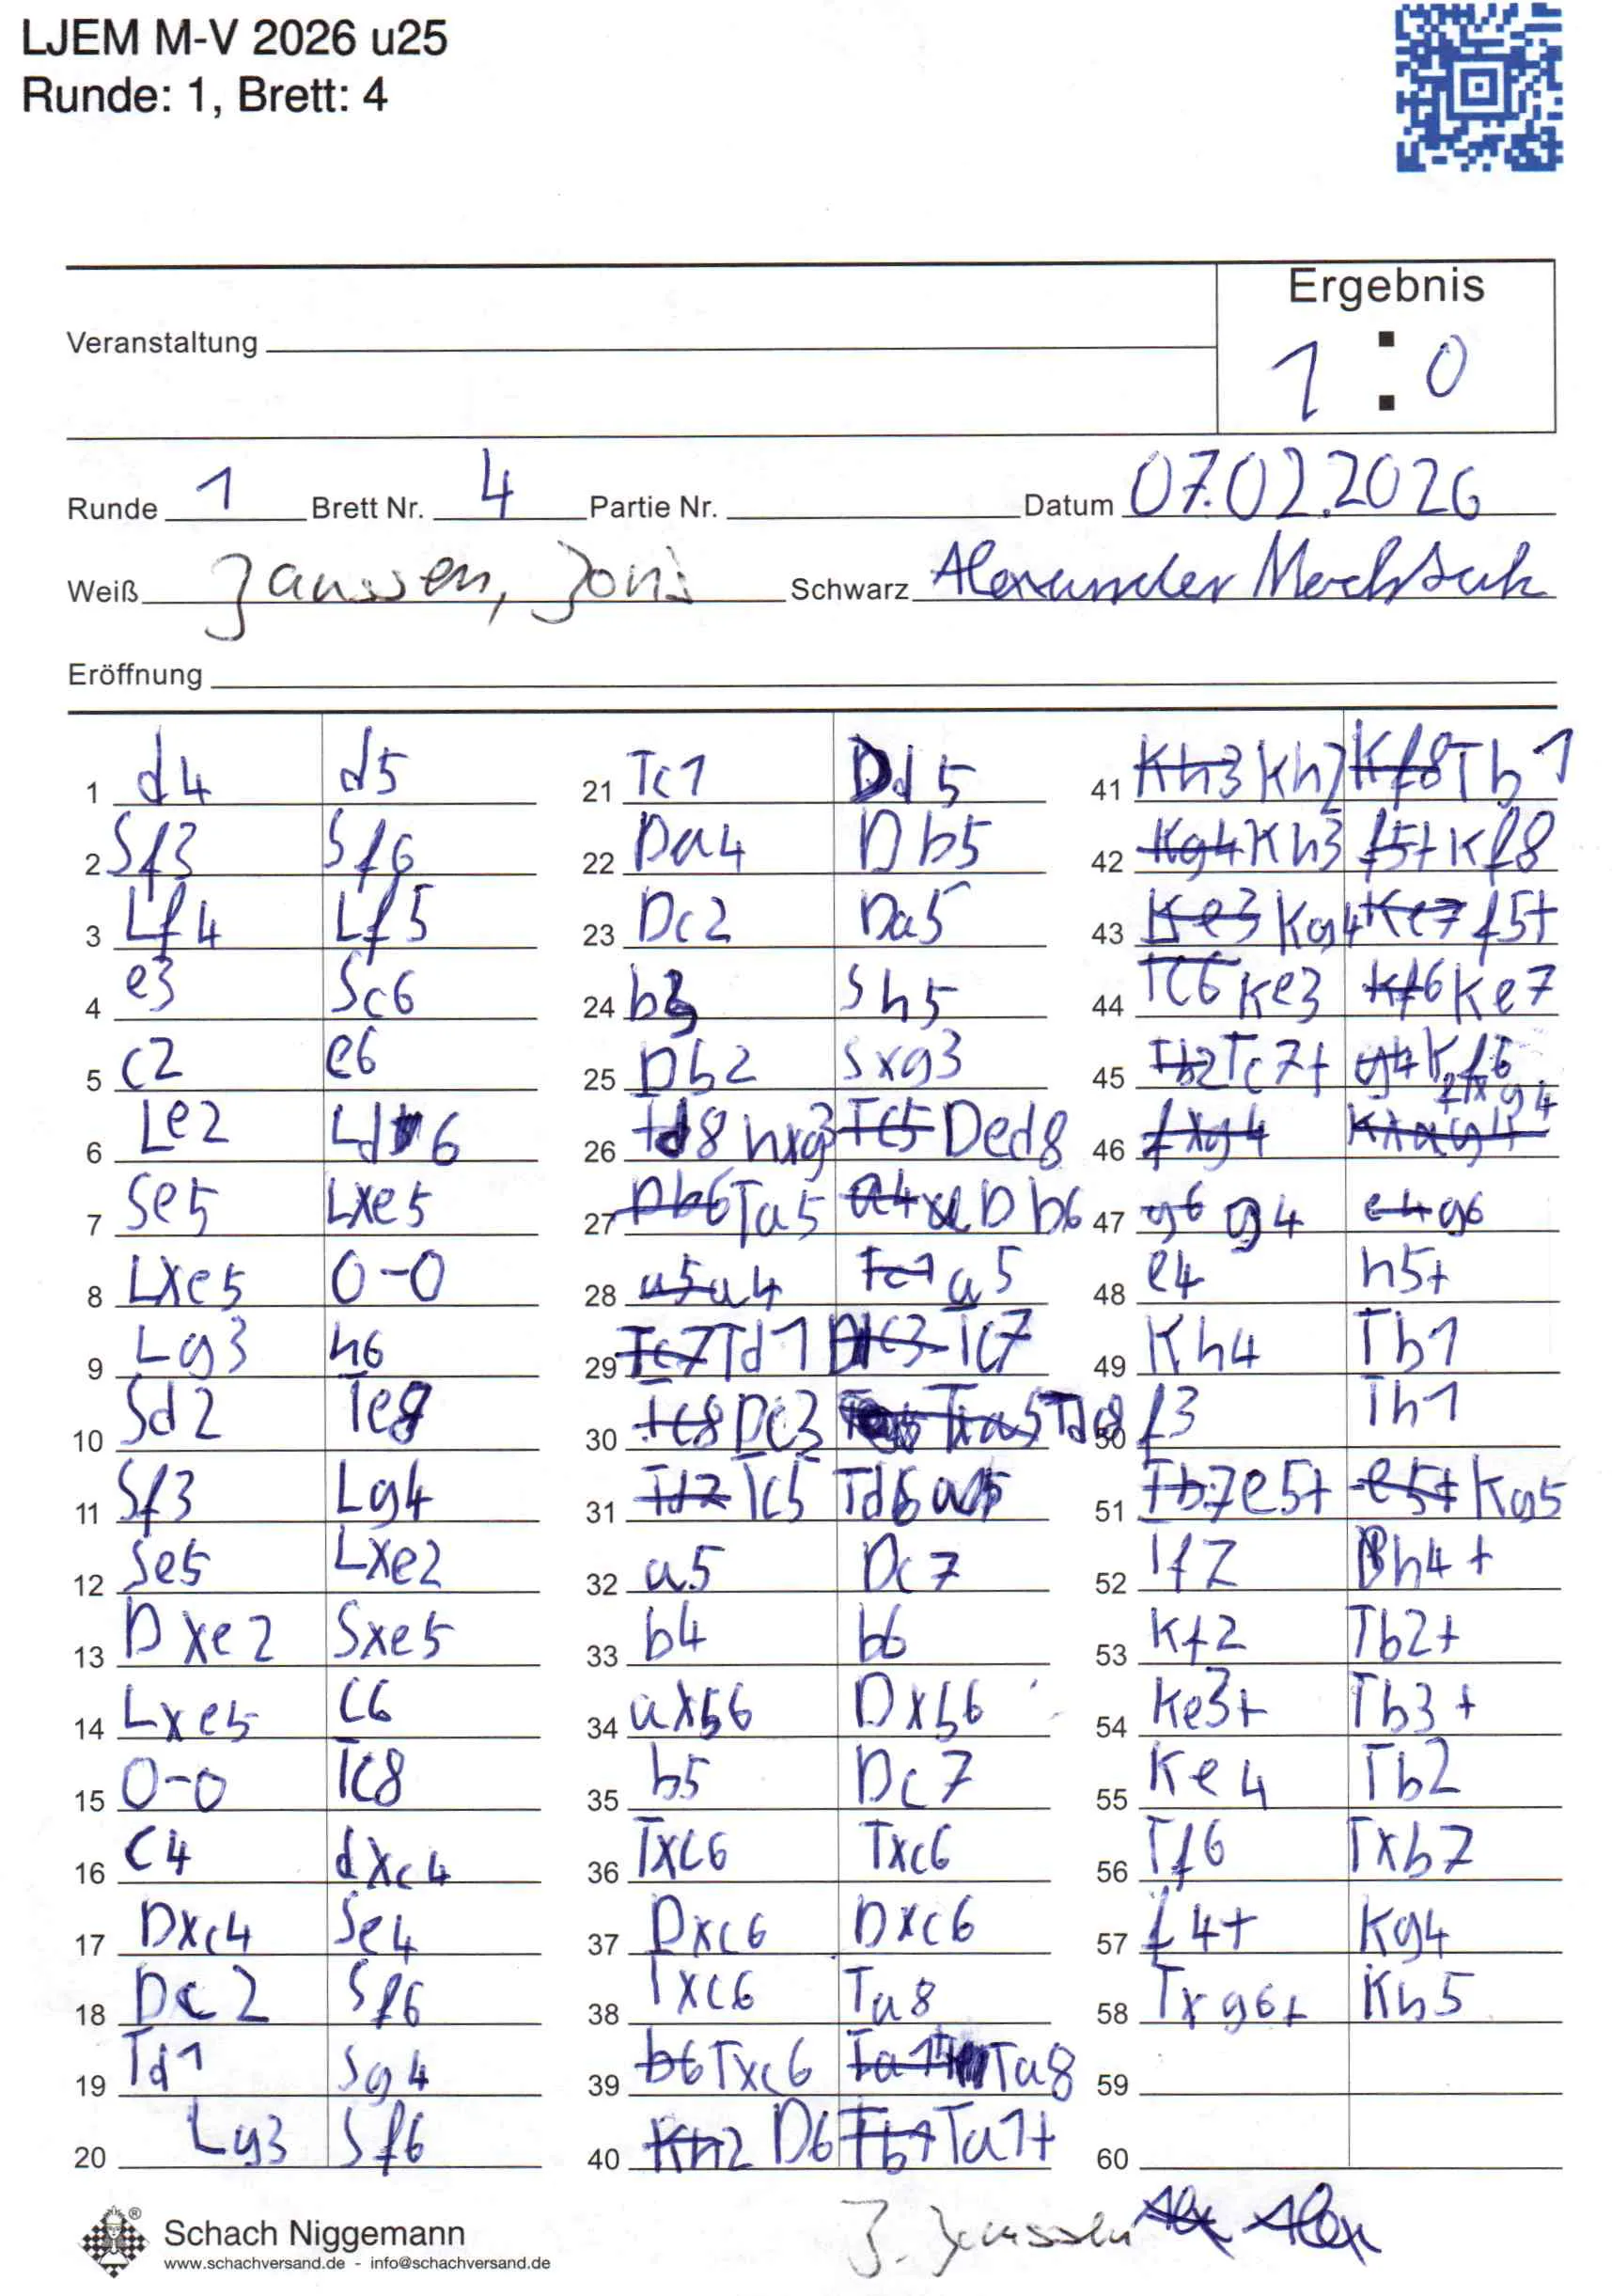 LJEM M-V 2026 u25
Runde: 1, Brett: 4
Ergebnis
Veranstaltung
1 : 0
Runde 1 Brett Nr. 4 Partie Nr. Datum 07.02.2026
Weiß Janssen, Joris Schwarz Alexander
Eröffnung
1 d4 d5
2 Sf3 Sf6
3 Lf4 Lf5
4 e3 Sc6
5 c2 e6
6 Le2 Ld6
7 Se5 Lxe5
8 Lxe5 0-0
9 Lg3 h6
10 Sd2 Te8
11 Sf3 Lg4
12 Se5 Lxe2
13 Dxe2 Sxe5
14 Lxe5 c6
15 0-0 Tc8
16 c4 dxc4
17 Dxc4 Se4
18 Dc2 Sf6
19 Td1 Sg4
20 Lg3 Sf6
21 Tc1 Dd5
22 Da4 Db5
23 Dc2 Da5
24 b3 Sh5
25 Db2 Sxg3
26 hxg3 Ded8
27 Ta5 Db6
28 a4 a5
29 Td1 Tc7
30 Dc3 Tdc8
31 Tc5 Td6
32 a5 Dc7
33 b4 b6
34 axb6 Dxb6
35 b5 Dc7
36 Txc6 Txc6
37 Dxc6 Dxc6
38 Txc6 Ta8
39 Txc6 Ta8
40 D6 Ta1+
41 Kh2 Tb1
42 Kh3 Kf8
43 Kg4 f5+
44 Ke3 Ke7
45 Tc7+ Kf6
46 fxg4
47 g4 g6
48 e4 h5+
49 Kh4 Tb1
50 f3 Th1
51 e5+ Kg5
52 Tf7 h4+
53 Kf2 Tb2+
54 Ke3+ Tb3+
55 Ke4 Tb2
56 Tf6 Txb7
57 f4+ Kg4
58 Txg6+ Kh5
59
60
J. Janssen Alex
Schach Niggemann
www.schachversand.de - info@schachversand.de